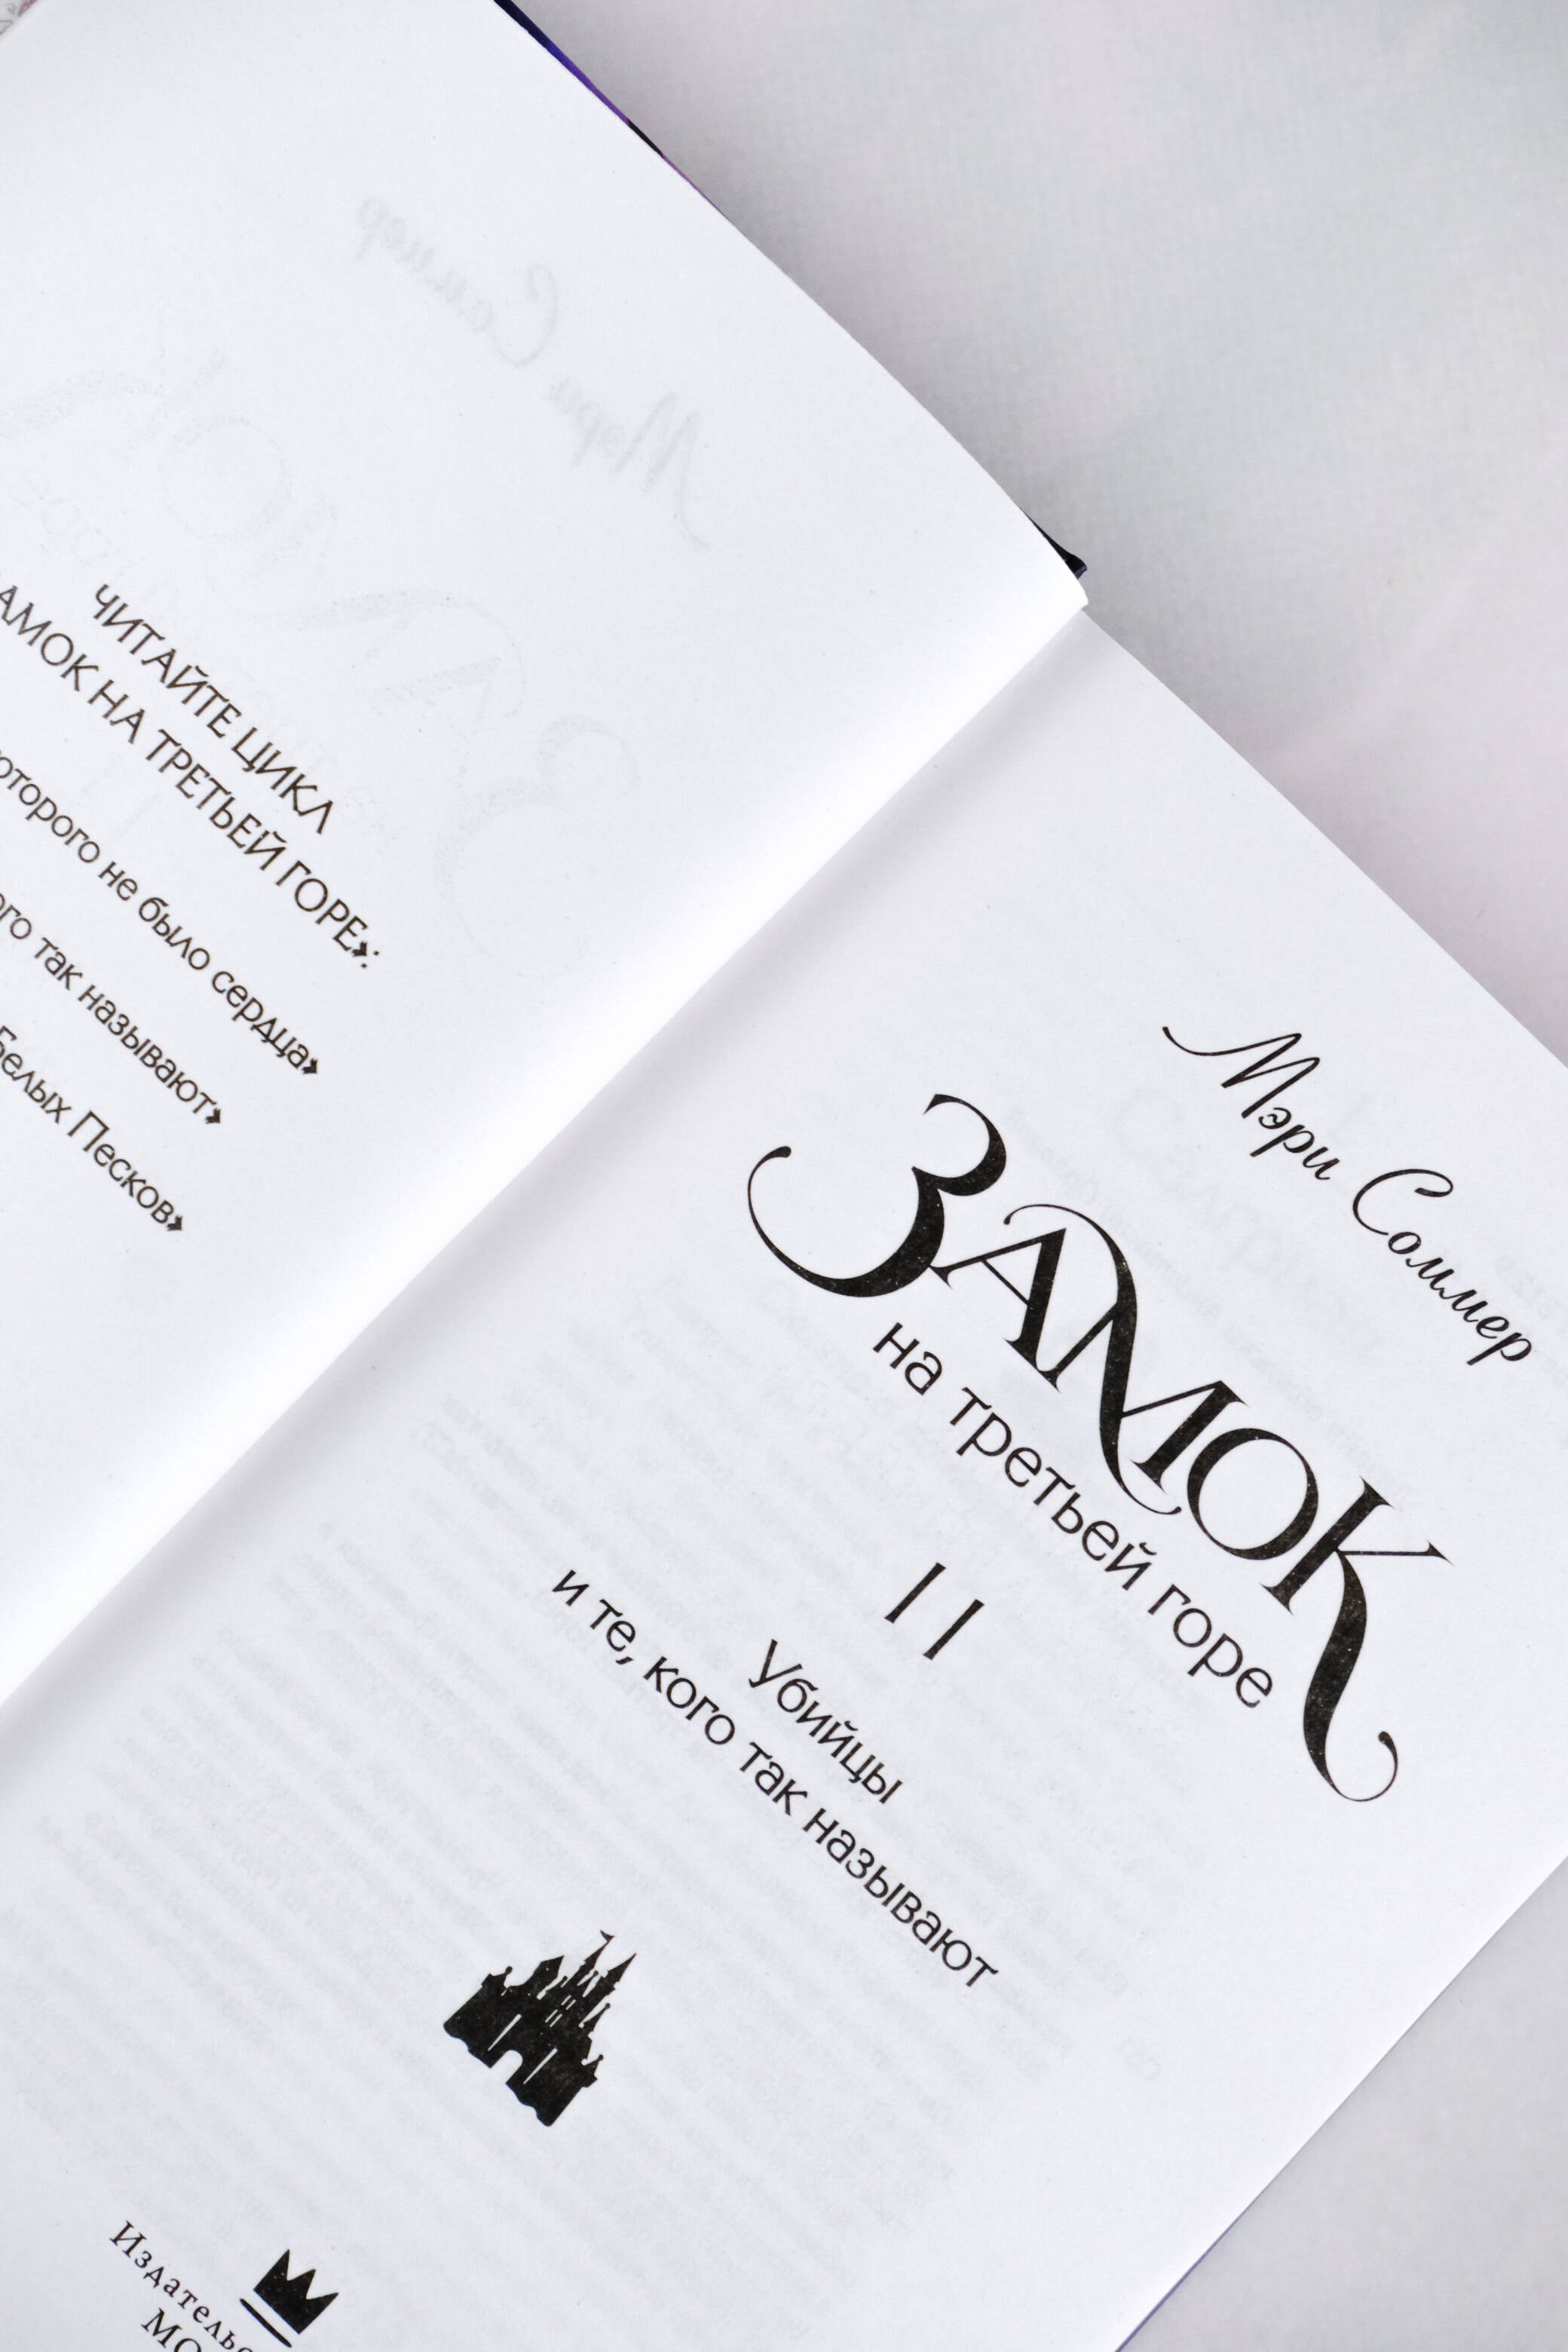 ЧИТАЙТЕ ЦИКЛ
АМОК НА ТРЕТЬЕЙ ГОРЕ»:
оторого не было сердца»
ого так называют»
Белых Песков»
Мэри Соммер
ЗАМОК
на третьей горе
II
Убийцы
и те, кого так называют
Издательс
МО